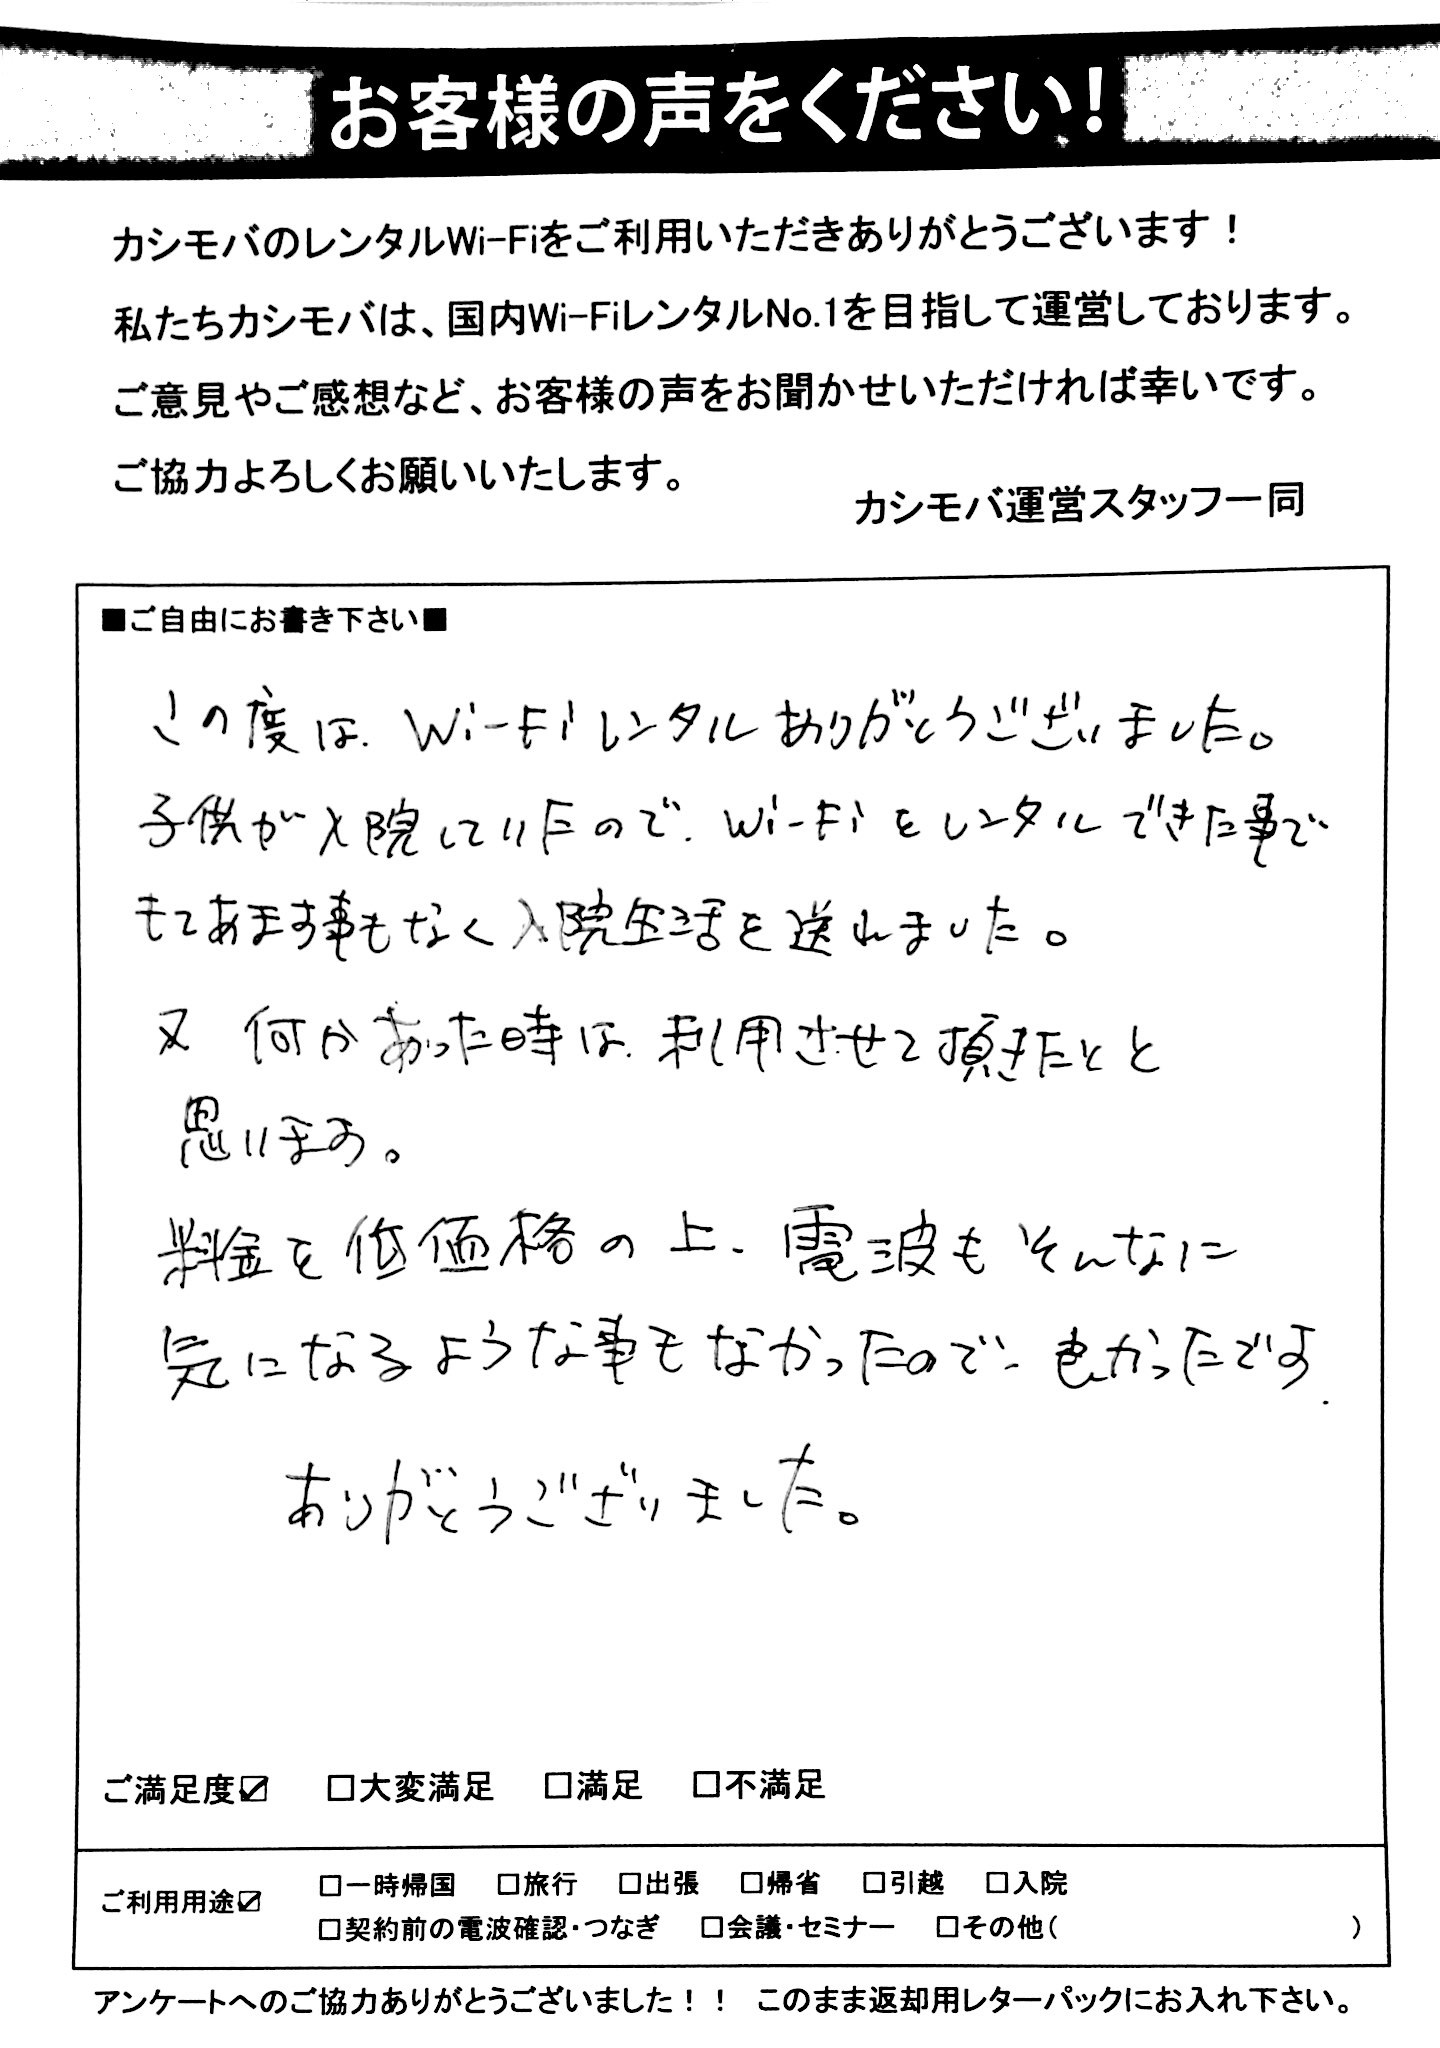 お客様の声をください！
カシモバのレンタルWi-Fiをご利用いただきありがとうございます！
私たちカシモバは、国内Wi-FiレンタルNo.1を目指して運営しております。
ご意見やご感想など、お客様の声をお聞かせいただければ幸いです。
ご協力よろしくお願いいたします。
カシモバ運営スタッフ一同
■ご自由にお書き下さい■
この度は、Wi-Fiレンタルありがとうございました。
子供が入院していたので、Wi-Fiをレンタルできた事で
もてあます事もなく入院生活を送れました。
又 何かあった時は、利用させて頂きたいと
思います。
料金も低価格の上、電波もそんなに
気になるような事もなかったので、良かったです.
ありがとうございました。
ご満足度☑ □大変満足 □満足 □不満足
ご利用用途☑ □一時帰国 □旅行 □出張 □帰省 □引越 □入院
□契約前の電波確認・つなぎ □会議・セミナー □その他( )
アンケートへのご協力ありがとうございました！！ このまま返却用レターパックにお入れ下さい。